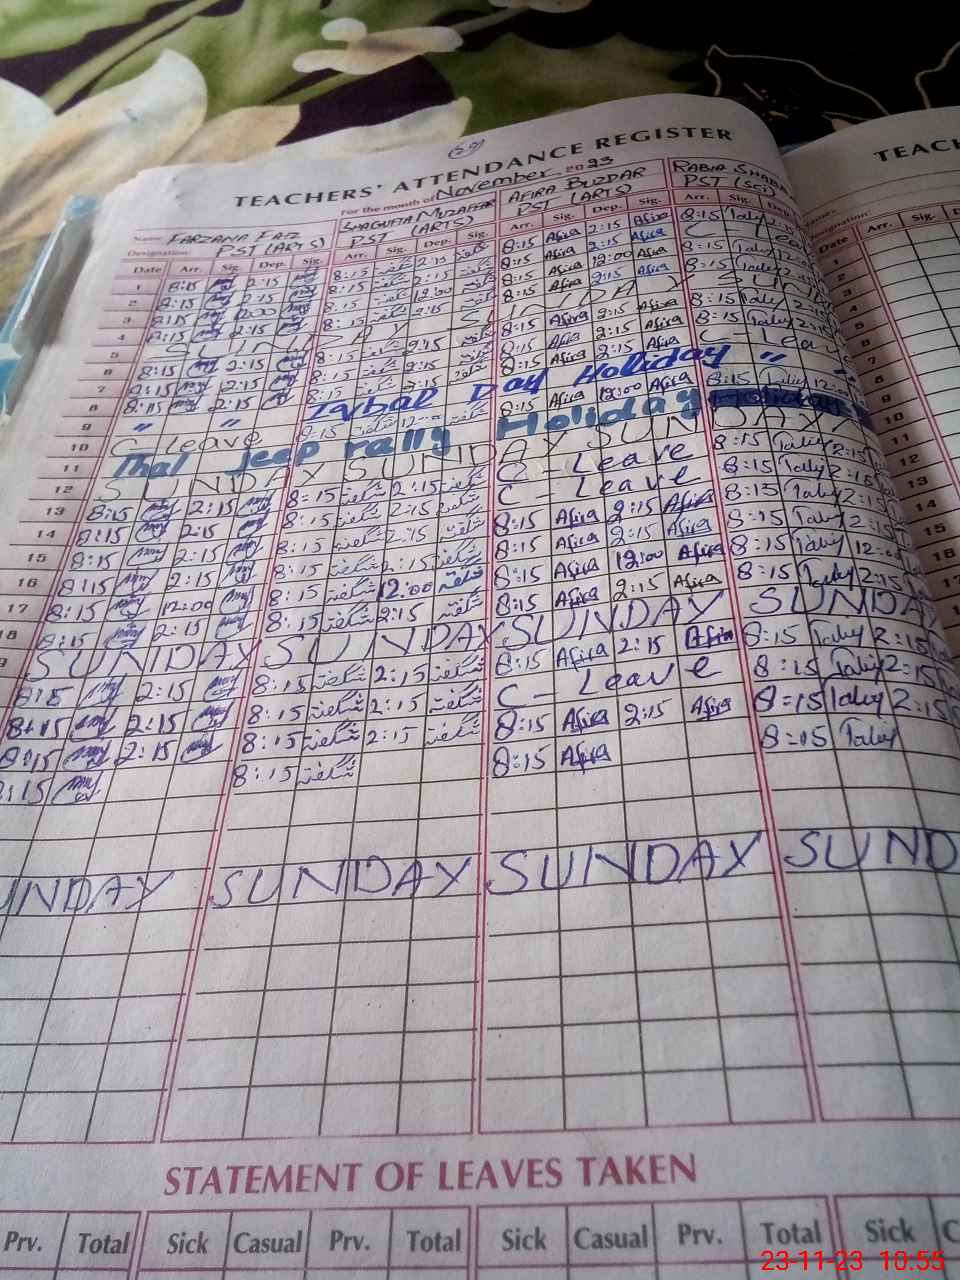 29
TEACHERS' ATTENDANCE REGISTER
TEACH
For the month of November 2023
Name: FARZANA FAIZ SHAGUFTA MUZAFFAR AFIRA BUZDAR RABIA SHABA
Designation: PST (ARTS) PST (ARTS) PST (ARTS) PST (Sci)
Date Arr. Sig. Dep. Sig. Arr. Sig. Dep. Sig. Arr. Sig. Dep. Sig. Arr. Sig. Dep Date Arr. Sig.
1 8:15 2:15 8:15 شگفتہ 2:15 شگفتہ 8:15 Afira 2:15 Afira 8:15
2 8:15 2:15 8:15 شگفتہ 2:15 شگفتہ 8:15 Afira 2:15 Afira C - Lea
3 8:15 12:00 8:15 شگفتہ 12:00 شگفتہ 8:15 Afira 12:00 Afira 8:15
4 8:15 2:15 8:15 شگفتہ 2:15 8:15 Afira 2:15 Afira 8:15
5 SUNDAY SUNDAY SUN
6 8:15 2:15 8:15 شگفتہ 2:15 شگفتہ 8:15 Afira 2:15 Afira 8:15
7 8:15 2:15 8:15 شگفتہ 2:15 شگفتہ 8:15 Afira 2:15 Afira 8:15
8 8:15 2:15 8:15 2:15 شگفتہ 8:15 Afira 2:15 Afira C - Leav
9 " " Iqbal Day Holiday "
10 C - leave 8:15 شگفتہ 12:00 شگفتہ 8:15 Afira 12:00 Afira 8:15 12:00
11 Thal jeep rally Holiday Holiday
12 SUNDAY SUNDAY SUNDAY
13 8:15 2:15 8:15 شگفتہ 2:15 شگفتہ C - Leave 8:15 2:15
14 8:15 2:15 8:15 شگفتہ 2:15 شگفتہ C - Leave 8:15 2:15
15 8:15 2:15 8:15 شگفتہ 2:15 شگفتہ 8:15 Afira 2:15 Afira 8:15 2:15
16 8:15 2:15 8:15 شگفتہ 2:15 شگفتہ 8:15 Afira 2:15 Afira 8:15 2:15
17 8:15 12:00 8:15 شگفتہ 12:00 شگفتہ 8:15 Afira 12:00 Afira 8:15 12:00
18 8:15 2:15 8:15 شگفتہ 2:15 شگفتہ 8:15 Afira 2:15 Afira 8:15 2:15
SUNDAY SUNDAY SUNDAY SUNDA
8:15 2:15 8:15 شگفتہ 2:15 شگفتہ 8:15 Afira 2:15 Afira 8:15 2:15
8:15 2:15 8:15 شگفتہ 2:15 شگفتہ C - Leave 8:15 2:15
8:15 2:15 8:15 شگفتہ 2:15 شگفتہ 8:15 Afira 2:15 Afira 8:15 2:15
8:15 8:15 شگفتہ 8:15 Afira 8:15
UNDAY SUNDAY SUNDAY SUND
STATEMENT OF LEAVES TAKEN
Prv. Total Sick Casual Prv. Total Sick Casual Prv. Total Sick C
23-11-23 10:55